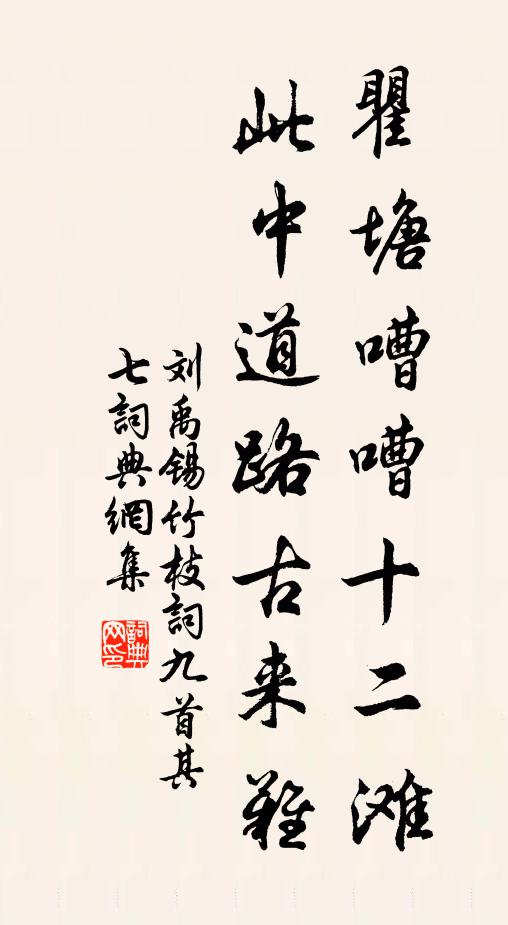 瞿塘嘈嘈十二滩
此中道路古来难
刘禹锡竹枝詞九首其
七詞典網集
詞典
网印